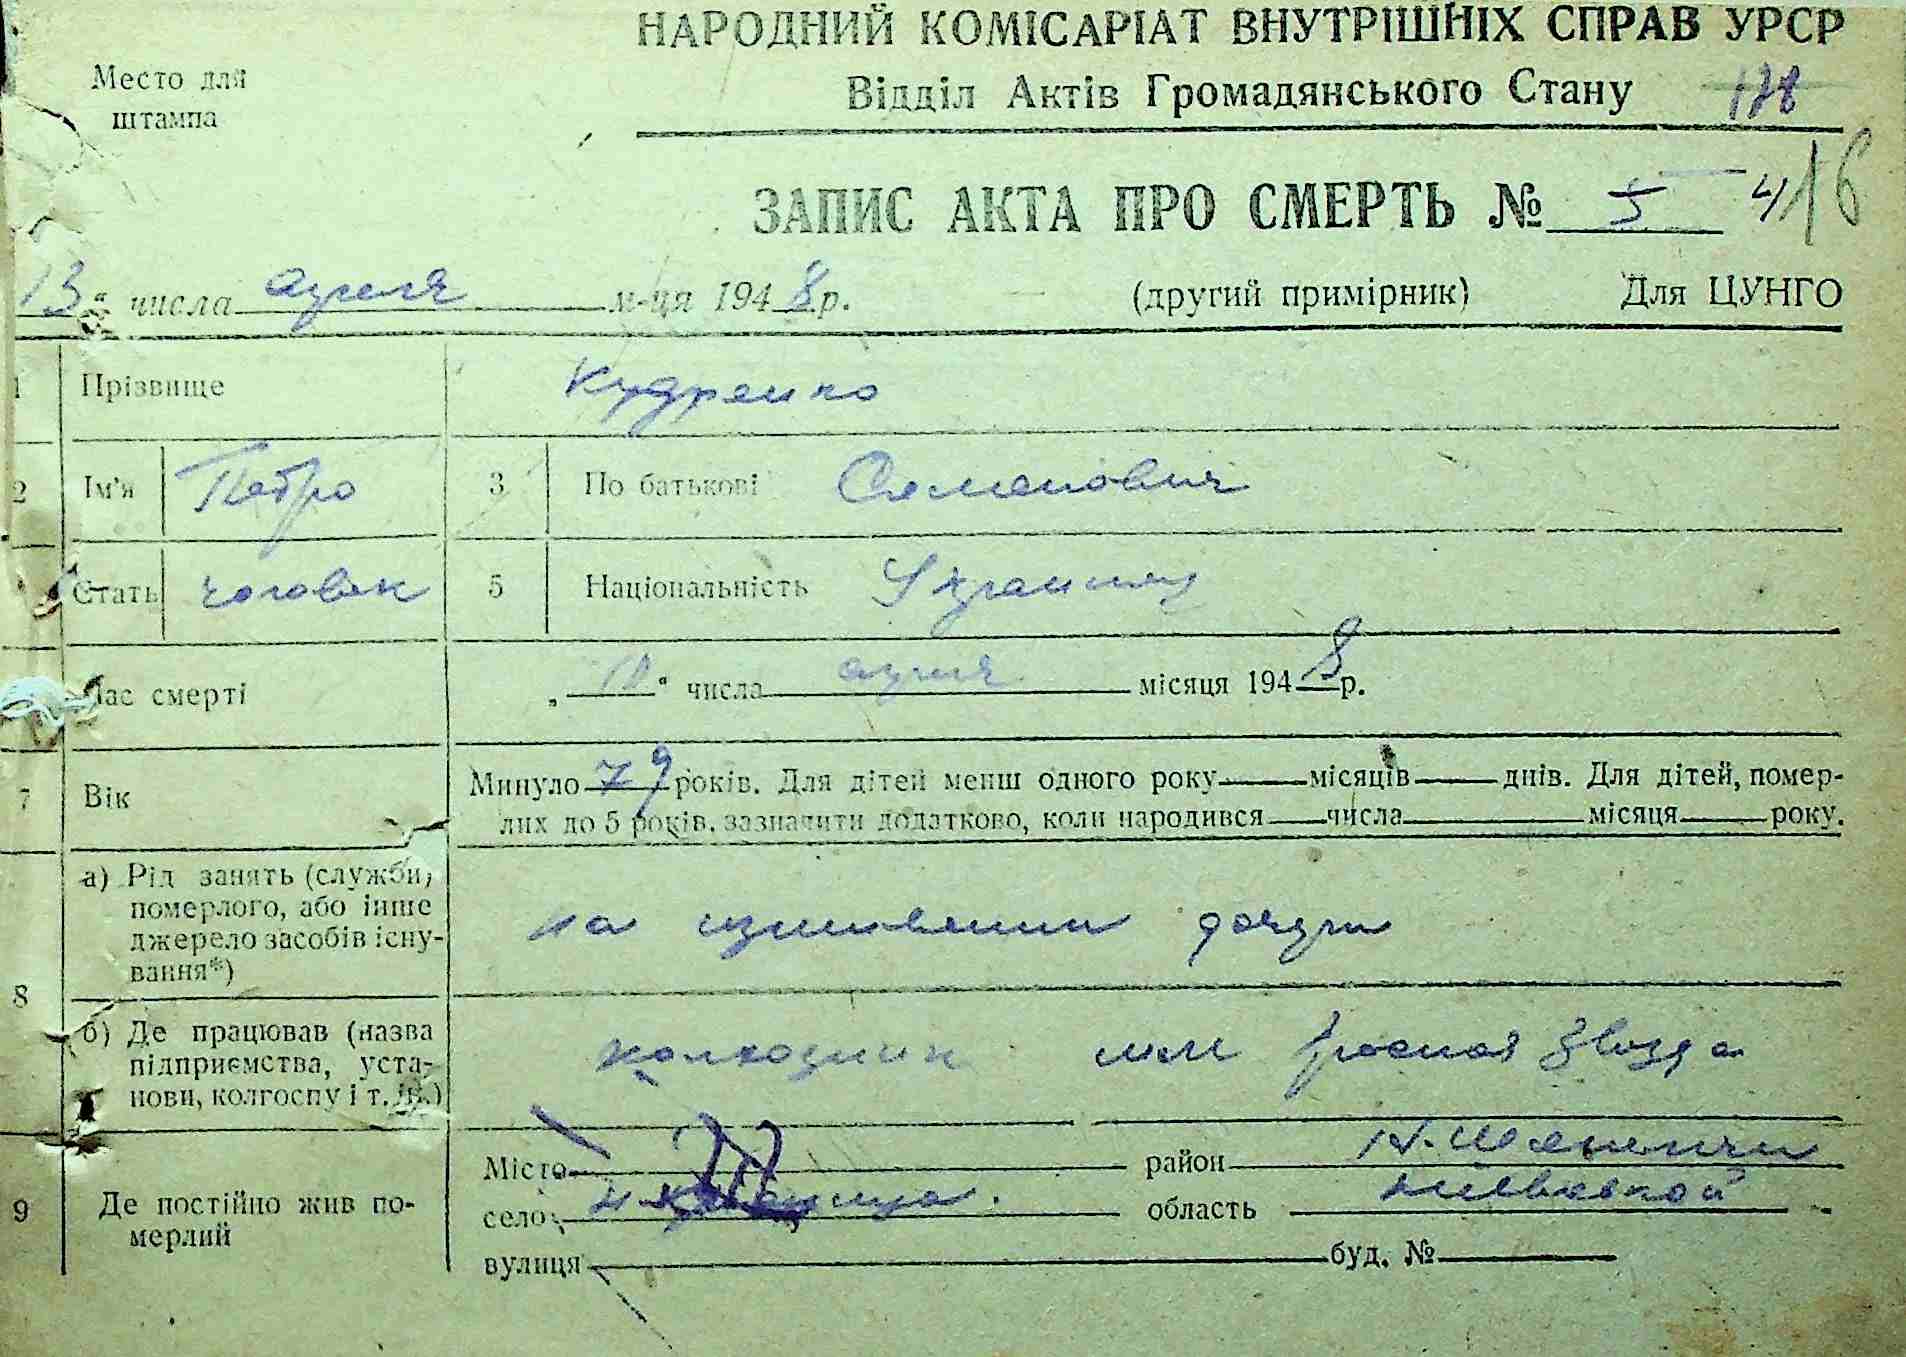 НАРОДНИЙ КОМІСАРІАТ ВНУТРІШНІХ СПРАВ УРСР
Место для штампа
Відділ Актів Громадянського Стану 178
ЗАПИС АКТА ПРО СМЕРТЬ № 5
416
13 " числа апреля м-ця 1948 р. (другий примірник) Для ЦУНГО
1 Прізвище Кудренко
2 Ім'я Петро 3 По батькові Семенович
Стать чоловек 5 Національність
Час смерті „ " числа апреля місяця 1948 р.
7 Вік Минуло 79 років. Для дітей менш одного року місяців днів. Для дітей, помер-
лих до 5 років, зазначити додатково, коли народився числа місяця року.
8 а) Рід занять (служби) померлого, або інше джерело засобів існу-вання*) на иждивении дочери
б) Де працював (назва підприємства, уста-нови, колгоспу і т. ін.) колхозник звезда
9 Де постійно жив по-мерлий
Місто район
село область
вулиця буд. №